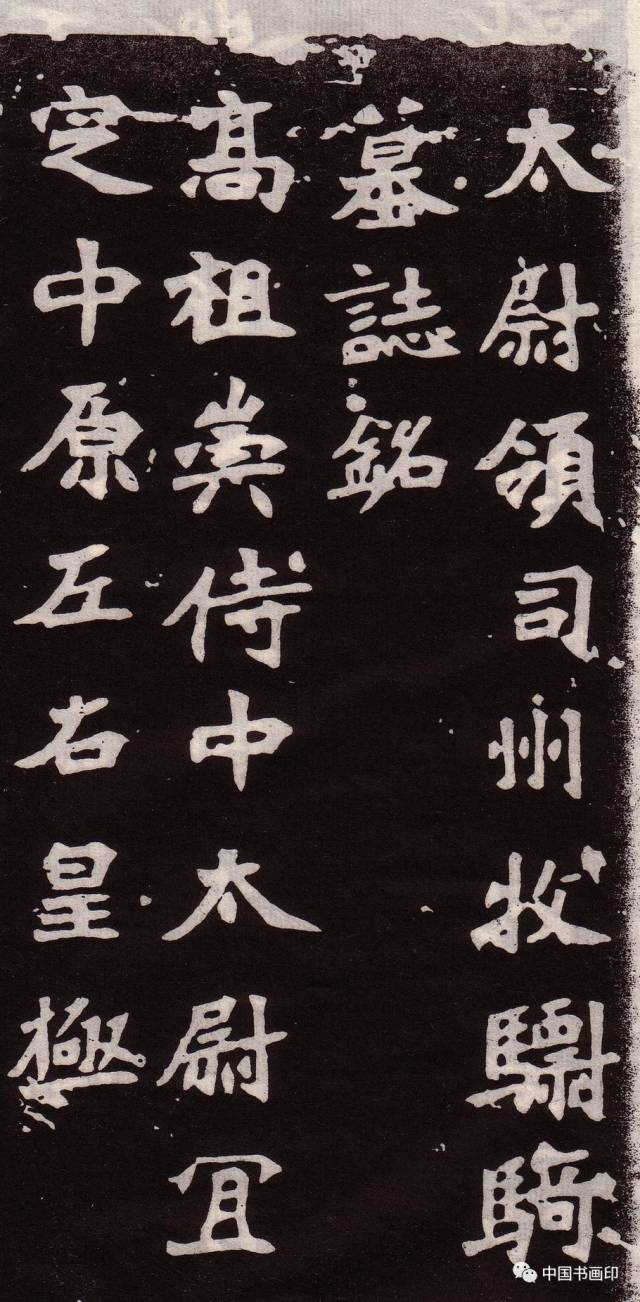 太尉領司州牧驃騎
墓誌銘
高祖崇侍中太尉宜
定中原左右皇極
中国书画印